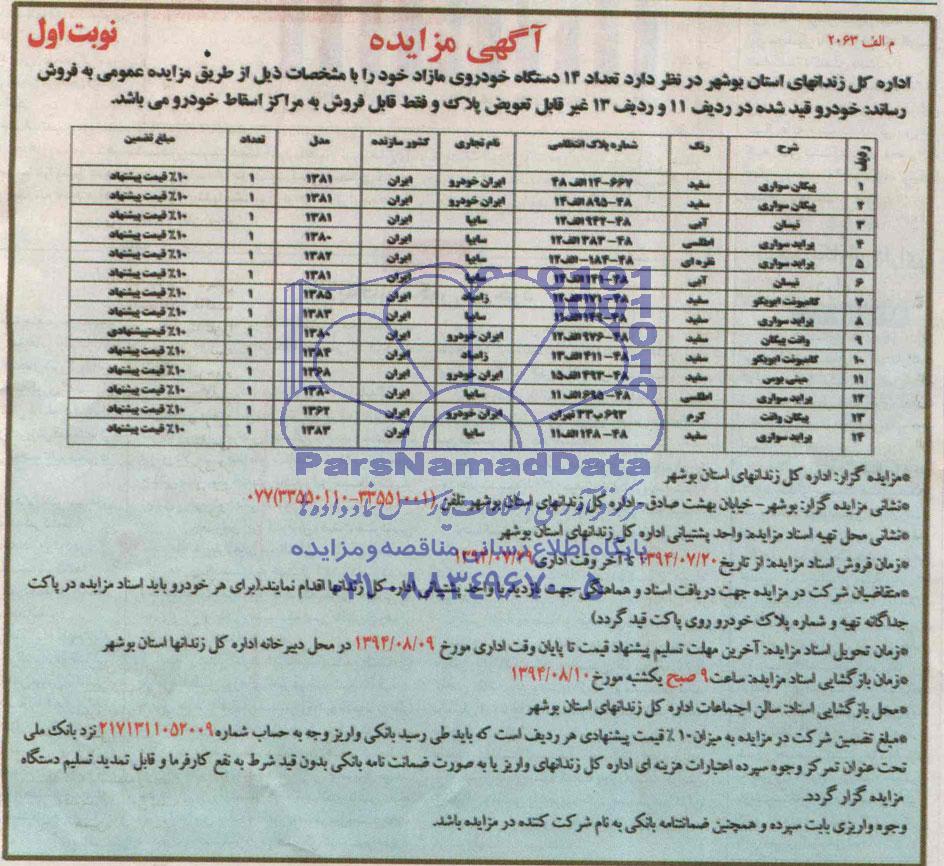 م الف ۲۰۶۳
آگهی مزایده
نوبت اول
اداره کل زندانهای استان بوشهر در نظر دارد تعداد ۱۴ دستگاه خودروی مازاد خود را با مشخصات ذیل از طریق مزایده عمومی به فروش
رساند: خودرو قید شده در ردیف ۱۱ و ردیف ۱۳ غیر قابل تعویض پلاک و فقط قابل فروش به مراکز اسقاط خودرو می باشد.
ردیف شرح رنگ شماره پلاک انتظامی نام تجاری کشور سازنده مدل تعداد مبلغ تضمین
۱ پیکان سواری سفید ۶۶۷-۱۴الف۴۸ ایران خودرو ایران ۱۳۸۱ ۱ ۱۰٪ قیمت پیشنهاد
۲ پیکان سواری سفید ۴۸-۸۹۵الف۱۴ ایران خودرو ایران ۱۳۸۱ ۱ ۱۰٪ قیمت پیشنهاد
۳ نیسان آبی ۴۸-۹۴۲الف۱۲ سایپا ایران ۱۳۸۱ ۱ ۱۰٪ قیمت پیشنهاد
۴ پراید سواری اطلسی سایپا ایران ۱۳۸۰ ۱ ۱۰٪ قیمت پیشنهاد
۵ پراید سواری نقره ای سایپا ایران ۱۳۸۲ ۱ ۱۰٪ قیمت پیشنهاد
۶ نیسان آبی سایپا ایران ۱۳۸۱ ۱ ۱۰٪ قیمت پیشنهاد
۷ کامیونت ایویکو سفید زامیاد ایران ۱۳۸۵ ۱ ۱۰٪ قیمت پیشنهاد
۸ پراید سواری سفید سایپا ایران ۱۳۸۳ ۱ ۱۰٪ قیمت پیشنهاد
۹ وانت پیکان سفید ۴۸-۹۷۶الف۱۲ ایران خودرو ایران ۱۳۸۰ ۱ ۱۰٪ قیمت پیشنهادی
۱۰ کامیونت ایویکو سفید ۴۸-۴۱۱الف۱۳ زامیاد ایران ۱۳۸۴ ۱ ۱۰٪ قیمت پیشنهاد
۱۱ مینی بوس سفید ۴۸-۴۹۳الف۱۵ ایران خودرو ایران ۱۳۶۸ ۱ ۱۰٪ قیمت پیشنهاد
۱۲ پراید سواری اطلسی ۴۸-۶۹۵الف۱۱ سایپا ایران ۱۳۸۰ ۱ ۱۰٪ قیمت پیشنهاد
۱۳ پیکان وانت کرم ۶۹۳ب۳۳تهران ایران خودرو ایران ۱۳۶۲ ۱ ۱۰٪ قیمت پیشنهاد
۱۴ پراید سواری سفید ۴۸-۱۴۸الف۱۱ سایپا ایران ۱۳۸۳ ۱ ۱۰٪ قیمت پیشنهاد
ParsNamadData
*مزایده گزار: اداره کل زندانهای استان بوشهر
*نشانی مزایده گزار: بوشهر- خیابان بهشت صادق- اداره کل زندانهای استان بوشهر تلفن (۳۳۵۵۱۰۰۱-۳۳۵۵۰۱۱۰)۰۷۷
*نشانی محل تهیه اسناد مزایده: واحد پشتیبانی اداره کل زندانهای استان بوشهر
پایگاه اطلاع رسانی مناقصه و مزایده
*زمان فروش اسناد مزایده: از تاریخ ۱۳۹۴/۰۷/۲۰ تا آخر وقت اداری ۱۳۹۴/۰۷/۲۹
۰۲۱-۸۸۳۴۹۶۷۰-۵
*متقاضیان شرکت در مزایده جهت دریافت اسناد و هماهنگی جهت بازدید با واحد پشتیبانی اداره کل زندانها اقدام نمایند.(برای هر خودرو باید اسناد مزایده در پاکت
جداگانه تهیه و شماره پلاک خودرو روی پاکت قید گردد)
*زمان تحویل اسناد مزایده: آخرین مهلت تسلیم پیشنهاد قیمت تا پایان وقت اداری مورخ ۱۳۹۴/۰۸/۰۹ در محل دبیرخانه اداره کل زندانها استان بوشهر
*زمان بازگشایی اسناد مزایده: ساعت ۹ صبح یکشنبه مورخ ۱۳۹۴/۰۸/۱۰
*محل بازگشایی اسناد: سالن اجتماعات اداره کل زندانهای استان بوشهر
*مبلغ تضمین شرکت در مزایده به میزان ۱۰ ٪ قیمت پیشنهادی هر ردیف است که باید طی رسید بانکی واریز وجه به حساب شماره ۲۱۷۱۳۱۱۰۵۲۰۰۹ نزد بانک ملی
تحت عنوان تمرکز وجوه سپرده اعتبارات هزینه ای اداره کل زندانهای واریز یا به صورت ضمانت نامه بانکی بدون قید شرط به نفع کارفرما و قابل تمدید تسلیم دستگاه
مزایده گزار گردد.
وجوه واریزی بابت سپرده و همچنین ضمانتنامه بانکی به نام شرکت کننده در مزایده باشد.